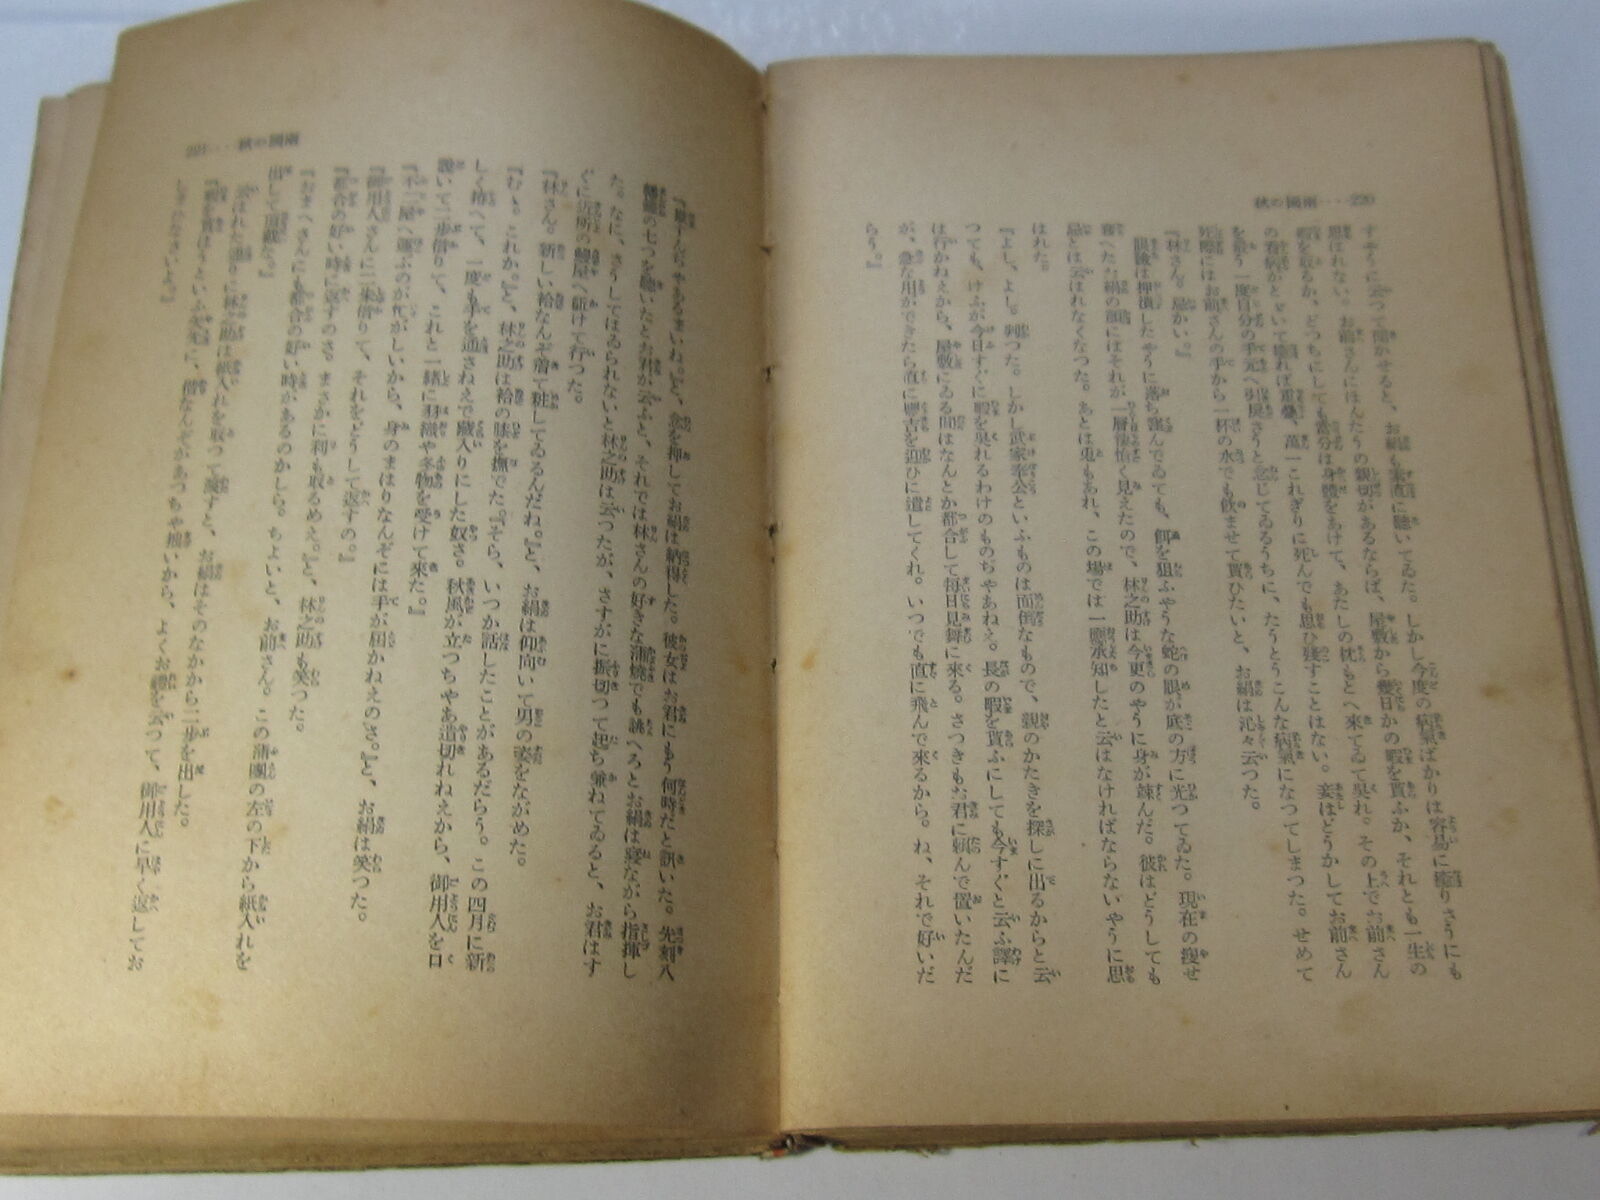 220‥‥秋の國兩
すやうに云つて聞かせると、お絹も素直に聽いてゐた。しかし今度の病氣ばかりは容易に癒りさうにも
思はれない。お前さんにほんたうの親切があるならば、屋敷から幾日かの暇を貰ふか、それとも一生の
暇を取るか、どつちにしても當分は身體をあけて、あたしの枕もとへ來てゐて呉れ。その上でお前さん
の看病がとゞいて癒れば重疊、萬一これぎりに死んでも思ひ殘すことはない。妾はどうかしてお前さん
を最う一度自分の手元へ引戾さうと念じてゐるうちに、たうとうこんな病氣になつてしまつた。せめて
死際にはお前さんの手から一杯の水でも飮ませて貰ひたいと、お絹は沁々云つた。
『林さん。忌かい。』
眼瞼は押潰したやうに落ち窪んでゐても、餌を狙ふやうな蛇の眼が底の方に光つてゐた。現在の瘦せ
窶へたお絹の顏にはそれが一層凄愴く見えたので、林之助は今更のやうに身が竦んだ。彼はどうしても
忌とは云はれなくなつた。あとは兎もあれ、この場では一應承知したと云はなければならないやうに思
はれた。
『よし、よし。判つた。しかし武家奉公といふものは面倒なもので、親のかたきを探しに出るからと云
つても、けふが今日すぐに暇を呉れるわけのものぢやあねえ。長の暇を貰ふにしても今すぐと云ふ譯に
は行かねえから、屋敷にゐる間はなんとか都合して每日見舞に來る。さつきもお君に賴んで置いたんだ
が、急な用ができたら直に豐吉を迎ひに遣してくれ。いつでも直に飛んで來るから。ね、それで好いだ
らう。』
221‥‥秋の國兩
念を押してお絹は納得した。彼女はお君にもう何時だと訊いた。先刻八
幡鐘の七つを聽いたとお君が云ふと、それでは林さんの好きな蒲燒でも誂へろとお絹は寢ながら指揮し
た。なに、さうしてはゐられないと林之助は云つたが、さすがに振切つて起ち兼ねてゐると、お君はす
ぐに近所の鰻屋へ駈けて行つた。
『林さん。新しい袷なんぞ着て粧してゐるんだね。』と、お絹は仰向いて男の姿をながめた。
『むゝ。これか。』と、林之助は袷の膝を撫でた。『そら、いつか話したことがあるだらう。この四月に新
しく拵へて、一度も手を通さねえで藏入りにした奴さ。秋風が立つちやあ遣切れねえから、御用人を口
說いて二步借りて、これと一緖に羽織や冬物を受けて來た。』
『不二屋へ運ぶのが忙がしいから、身のまはりなんぞには手が屆かねえのさ。』と、お絹は笑つた。
『御用人さんに二朱借りて、それをどうして返すの。』
『都合の好い時に返すのさ。まさかに利も取るめえ。』と、林之助も笑つた。
『おまへさんにも都合の好い時があるのかしら。ちよいと、お前さん。この蒲團の左の下から紙入れを
出して頂戴な。』
云はれた通りに林之助は紙入れを取つて渡すと、お絹はそのなかから二步を出した。
『暇を貰はうといふ矢先に、借なんぞがあつちや拙いから、よくお禮を云つて、御用人に早く返してお
しまひなさいよ。』